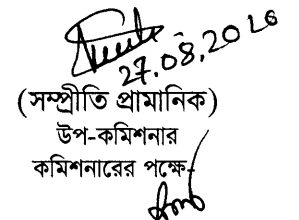 27.08.2020
(সম্প্রীতি প্রামানিক)
উপ-কমিশনার
কমিশনারের পক্ষে-